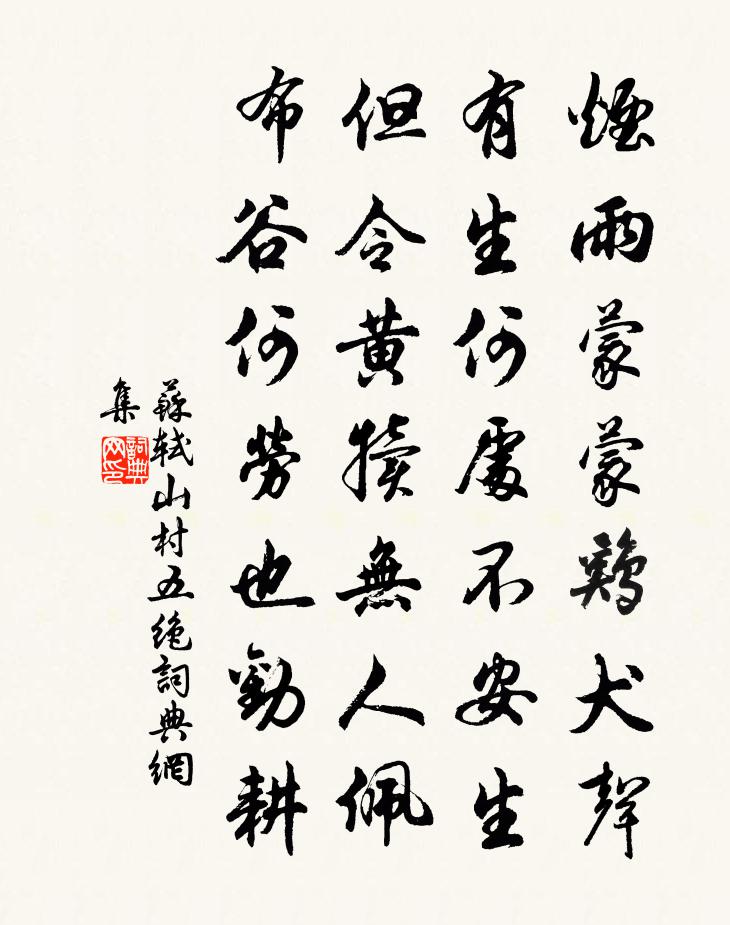 煙雨蒙蒙鷄犬聲
有生何處不安生
但令黃犢無人佩
布谷何勞也勸耕
蘇軾山村五绝詞典網
集
詞典網印